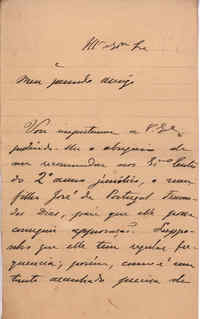 Illmo Exmo Sr
Meu presado amigo
Vou importunar a V. Exa
pedindo-lhe o obsequio de
me recommendar aos Exmos Lentes
do 2º anno juridico, o meu
filho José de Portugal
Dias, para que elle possa
conseguir approvação. Suppo-
nho que elle tem regular fre-
quencia; porém, como é um
tanto acanhado precisa de